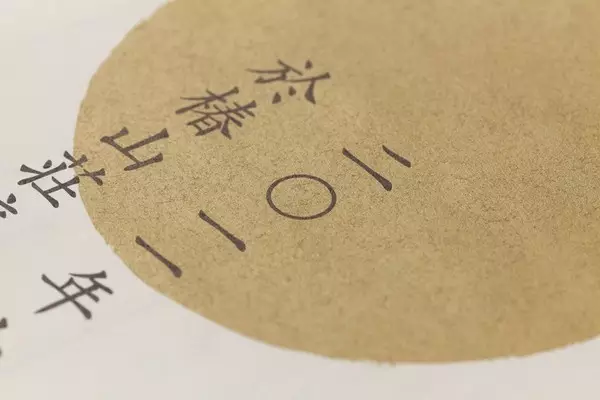 二〇一一年
於椿山荘